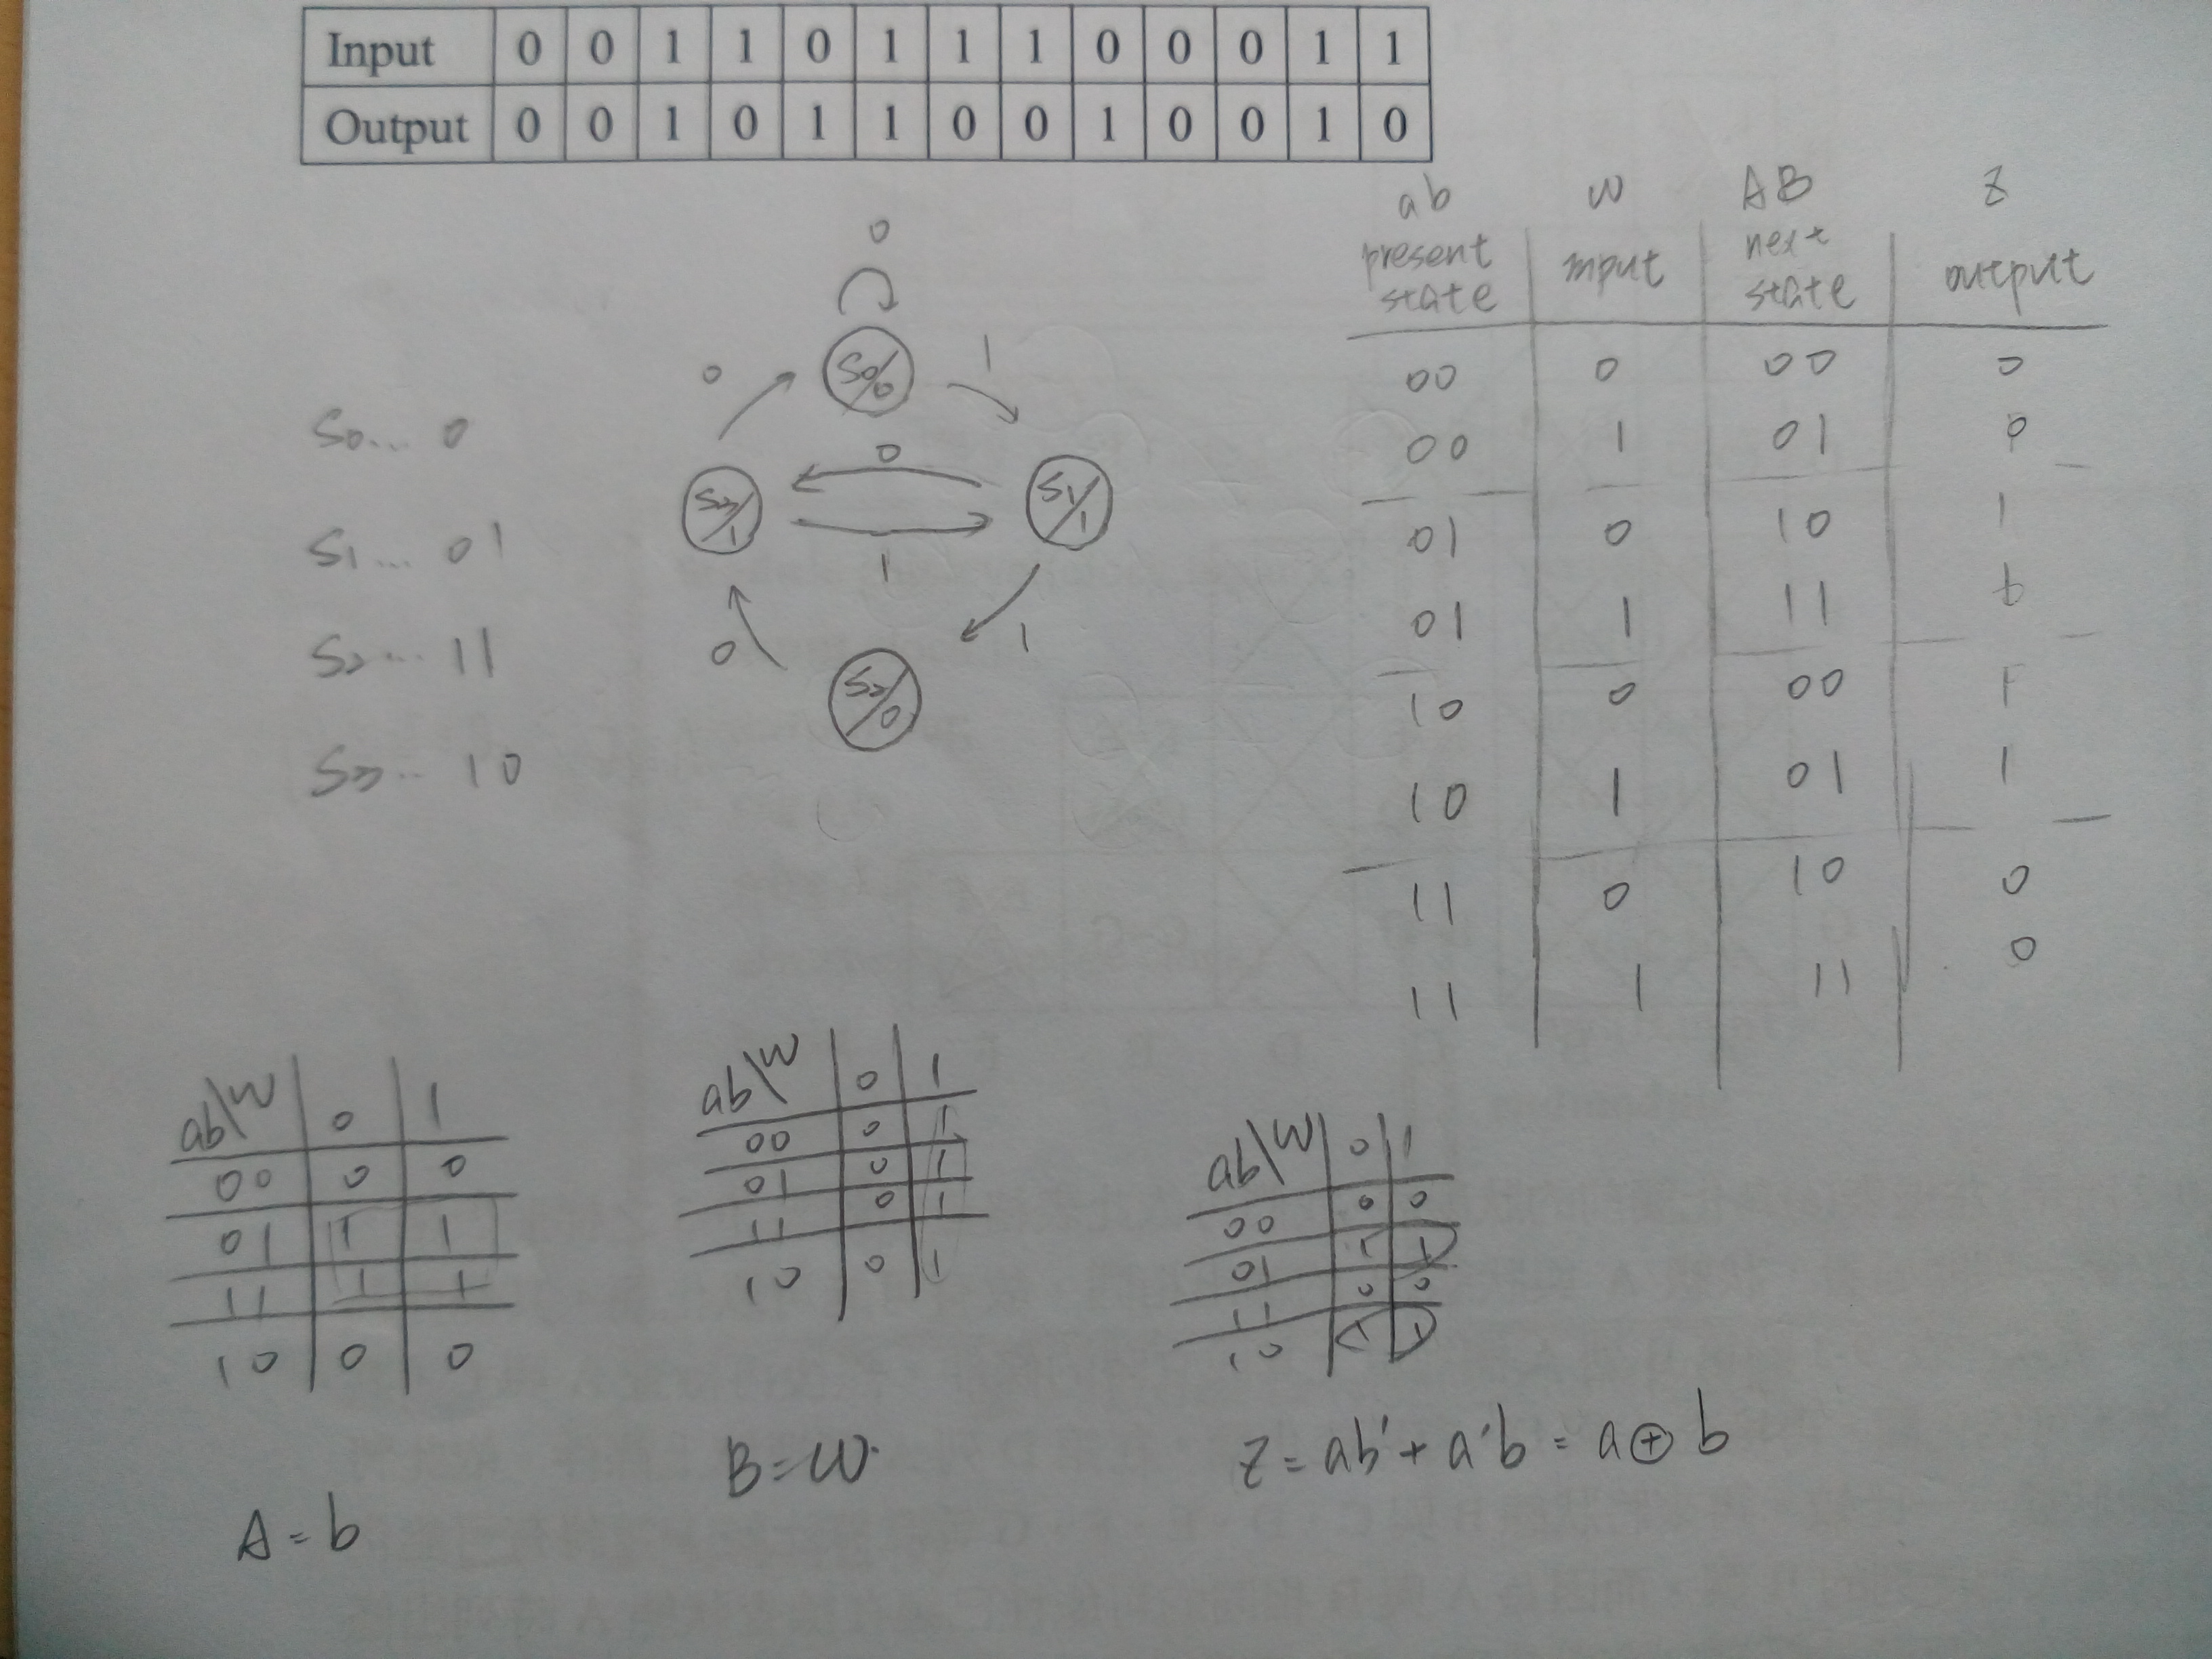 Input 0 0 1 1 0 1 1 1 0 0 0 1 1
Output 0 0 1 0 1 1 0 0 1 0 0 1 0
S0... 0
S1... 01
S2... 11
S3... 10
0
S0/0
1
0
0
S3/1
S1/1
1
0
1
S2/0
ab w AB z
present state input next state output
00 0 00 0
00 1 01 0
01 0 10 1
01 1 11 1
10 0 00 1
10 1 01 1
11 0 10 0
11 1 11 0
ab\w 0 1
00 0 0
01 1 1
11 1 1
10 0 0
A = b
ab\w 0 1
00 0 1
01 0 1
11 0 1
10 0 1
B = w.
ab\w 0 1
00 0 0
01 1 1
11 0 0
10 1 1
z = ab' + a'b = a ⊕ b